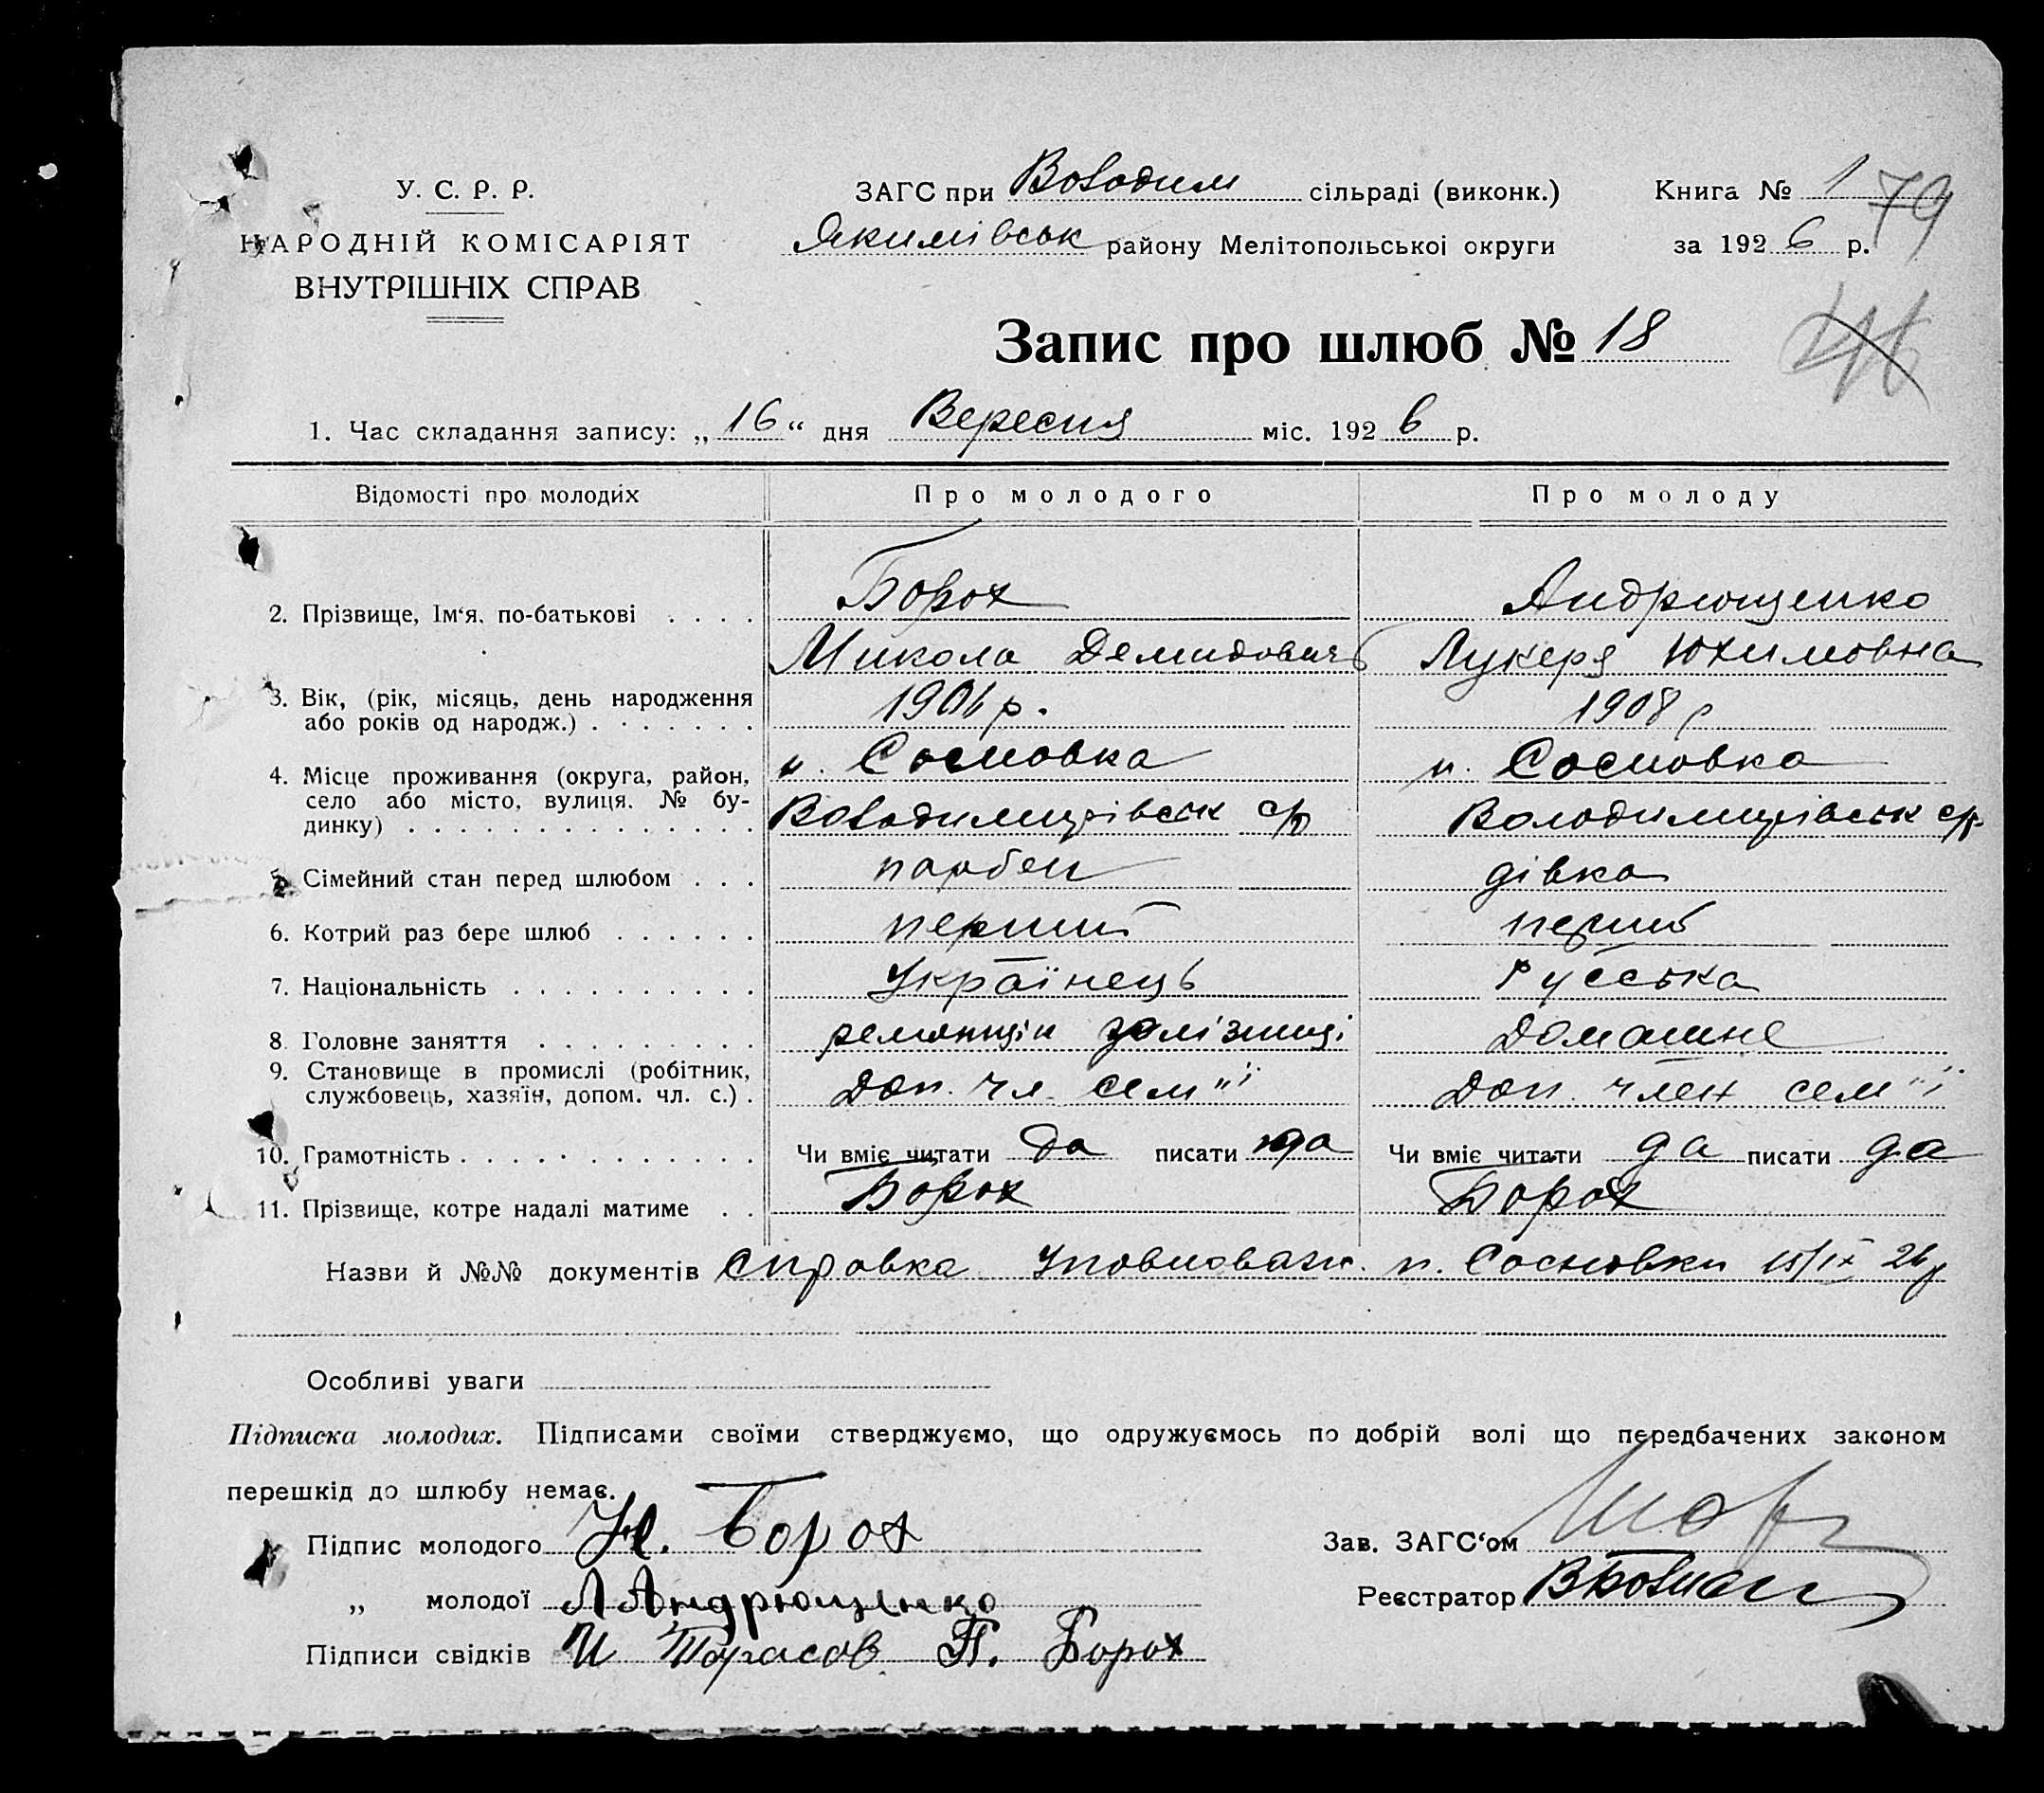 У. С. Р. Р.
НАРОДНІЙ КОМІСАРІЯТ
ВНУТРІШНІХ СПРАВ
ЗАГС при Володим сільраді (виконк.)
Якимівськ району Мелітопольськоі округи
Книга № 1
79
за 1926 р.
Запис про шлюб № 18
1. Час складання запису: „16“ дня Вересня міс. 1926 р.
Відомості про молодих Про молодого Про молоду
2. Прізвище, Ім‘я, по-батькові Борох Андрющенко
Микола Демидович Лукеря Юхимовна
3. Вік, (рік, місяць, день народження
або років од народж.) р. 1908 р
4. Місце проживання (округа, район, п. Сосновка п. Сосновка
село або місто, вулиця, № бу-
динку) Володимирівськ с/р Володимирівськ с/р
5. Сімейний стан перед шлюбом парбен дівка
6. Котрий раз бере шлюб перший перший
7. Національність Українець Руська
8. Головне заняття залізниці Домашнє
9. Становище в промислі (робітник,
службовець, хазяїн, допом. чл. с.) Доп. чл. сем"ї Доп. член сем"ї
10. Грамотність Чи вміє читати да писати да Чи вміє читати да писати да
11. Прізвище, котре надалі матиме Борох Борох
Назви й №№ документів Справка Уповноваж. п. Сосновки 15/IX 26р
Особливі уваги
Підписка молодих. Підписами своїми стверджуємо, що одружуємось по добрій волі що передбачених законом
перешкід до шлюбу немає.
Підпис молодого Н. Борох
Зав. ЗАГС‘ом
„ молодої Л Андрющенко
Реєстратор
Підписи свідків И Тарасов П. Борох